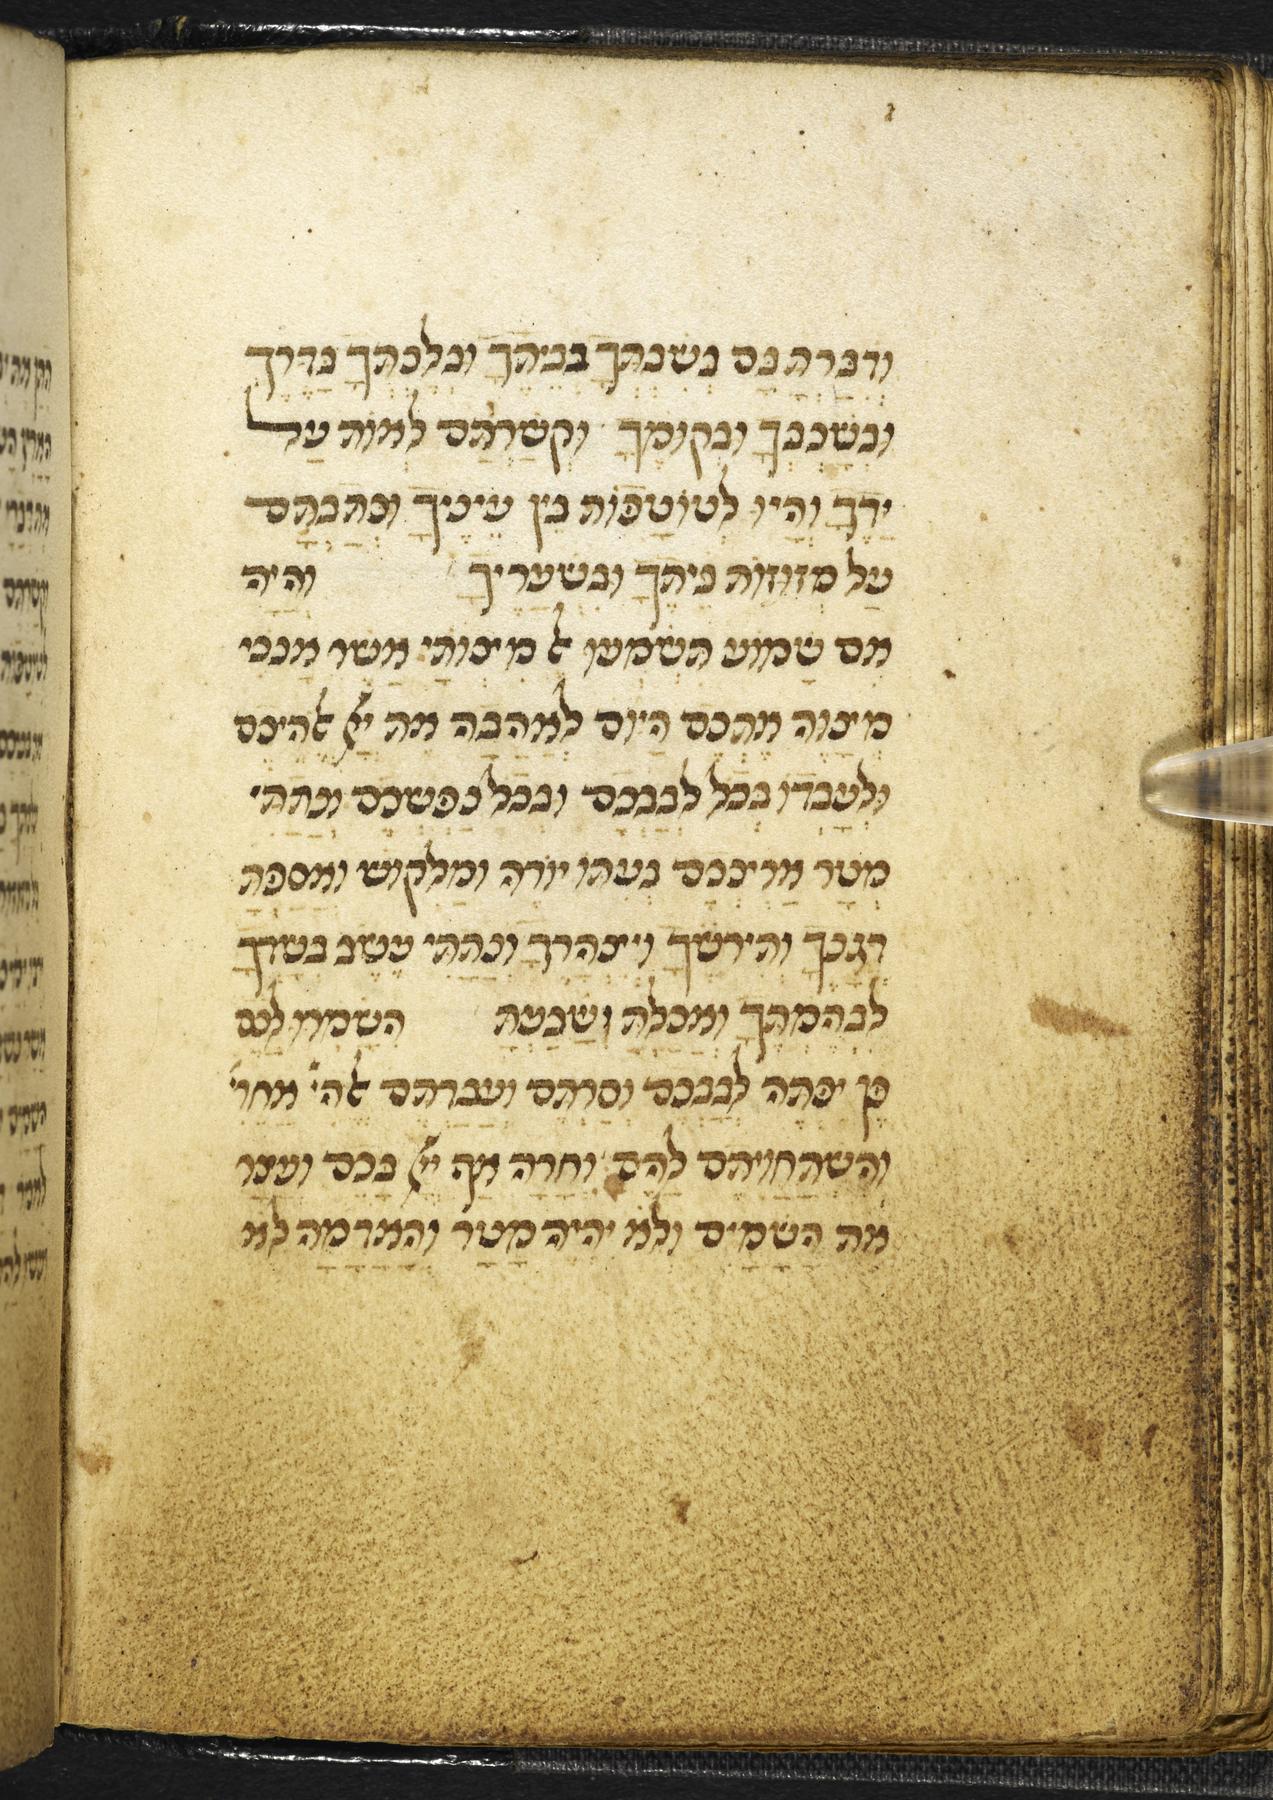 ודברת בם בשבתך בביתך ובלכתך בדרך
ובשכבך ובקומך וקשרתם לאות על
ידך והיו לטוטפות בין עיניך וכתבתם
על מזוזות ביתך ובשעריך והיה
אם שמוע תשמעו אל מצותי אשר אנכי
מצוה אתכם היום לאהבה את יי אלהיכם
ולעבדו בכל לבבכם ובכל נפשכם ונתתי
מטר ארצכם בעתו יורה ומלקוש ואספת
דגנך ותירשך ויצהרך ונתתי עשב בשדך
לבהמתך ואכלת ושבעת השמרו לכם
פן יפתה לבבכם וסרתם ועבדתם אלהי' אחרי'
והשתחויתם להם וחרה אף יי בכם ועצר
את השמים ולא יהיה מטר והאדמה לא